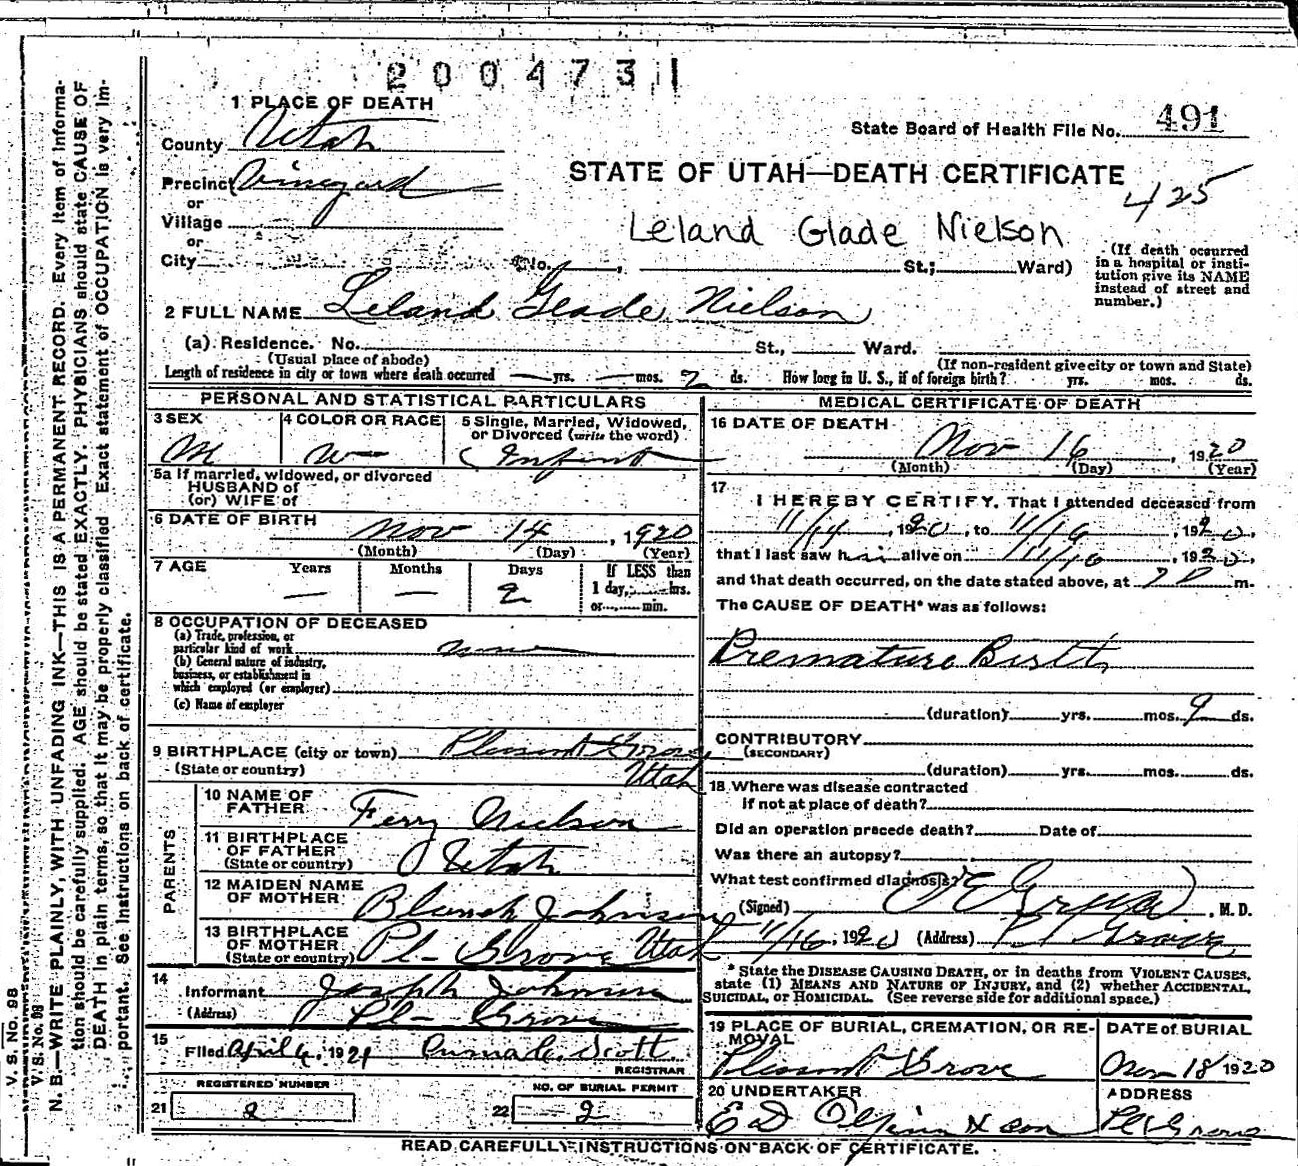 2004731
1 PLACE OF DEATH
County Utah
State Board of Health File No. 491
STATE OF UTAH—DEATH CERTIFICATE
425
Precinct Vineyard
or
Village
or
City
Leland Glade Nielson
No. , St.; Ward)
(If death occurred in a hospital or institution give its NAME instead of street and number.)
2 FULL NAME Leland Glade Nielson
(a) Residence. No. St., Ward.
(Usual place of abode)
(If non-resident give city or town and State)
Length of residence in city or town where death occurred — yrs. — mos. 2 ds. How long in U. S., if of foreign birth? yrs. mos. ds.
PERSONAL AND STATISTICAL PARTICULARS
3 SEX
M
4 COLOR OR RACE
W
5 Single, Married, Widowed, or Divorced (write the word)
Infant
5a If married, widowed, or divorced
HUSBAND of
(or) WIFE of
6 DATE OF BIRTH
Nov 14, 1920
(Month) (Day) (Year)
7 AGE Years Months Days If LESS than
— — 2 1 day, hrs.
or min.
8 OCCUPATION OF DECEASED
(a) Trade, profession, or
particular kind of work none
(b) General nature of industry,
business, or establishment in
which employed (or employer)
(c) Name of employer
9 BIRTHPLACE (city or town) Pleasant Grove
(State or country) Utah
PARENTS
10 NAME OF FATHER Ferry Nielson
11 BIRTHPLACE OF FATHER
(State or country) Utah
12 MAIDEN NAME OF MOTHER Blanch Johnson
13 BIRTHPLACE OF MOTHER
(State or country) Pl- Grove Utah
14
Informant Joseph Johnson
(Address) Pl- Grove
15
Filed April 4, 1921 Scott
REGISTRAR
REGISTERED NUMBER
21 2
NO. OF BURIAL PERMIT
22 2
MEDICAL CERTIFICATE OF DEATH
16 DATE OF DEATH
Nov 16, 1920
(Month) (Day) (Year)
17
I HEREBY CERTIFY, That I attended deceased from
11/14, 1920, to 11/16, 1920,
that I last saw him alive on 11/16, 1920,
and that death occurred, on the date stated above, at 7 P m.
The CAUSE OF DEATH* was as follows:
Premature Birth
(duration) yrs. mos. ds.
CONTRIBUTORY
(SECONDARY)
(duration) yrs. mos. ds.
18 Where was disease contracted
if not at place of death?
Did an operation precede death? Date of
Was there an autopsy?
What test confirmed diagnosis?
(Signed) , M. D.
11/16, 1920 (Address) Pl Grove
* State the DISEASE CAUSING DEATH, or in deaths from VIOLENT CAUSES,
state (1) MEANS AND NATURE OF INJURY, and (2) whether ACCIDENTAL,
SUICIDAL, OR HOMICIDAL. (See reverse side for additional space.)
19 PLACE OF BURIAL, CREMATION, OR REMOVAL
Pleasant Grove
DATE of BURIAL
Nov 18 1920
20 UNDERTAKER
E D Olpin & son
ADDRESS
Pl Grove
READ CAREFULLY INSTRUCTIONS ON BACK OF CERTIFICATE.
V. S. No. 98
V. S. No. 98
N. B.—WRITE PLAINLY, WITH UNFADING INK—THIS IS A PERMANENT RECORD. Every item of information should be carefully supplied. AGE should be stated EXACTLY. PHYSICIANS should state CAUSE OF DEATH in plain terms, so that it may be properly classified. Exact statement of OCCUPATION is very important. See instructions on back of certificate.